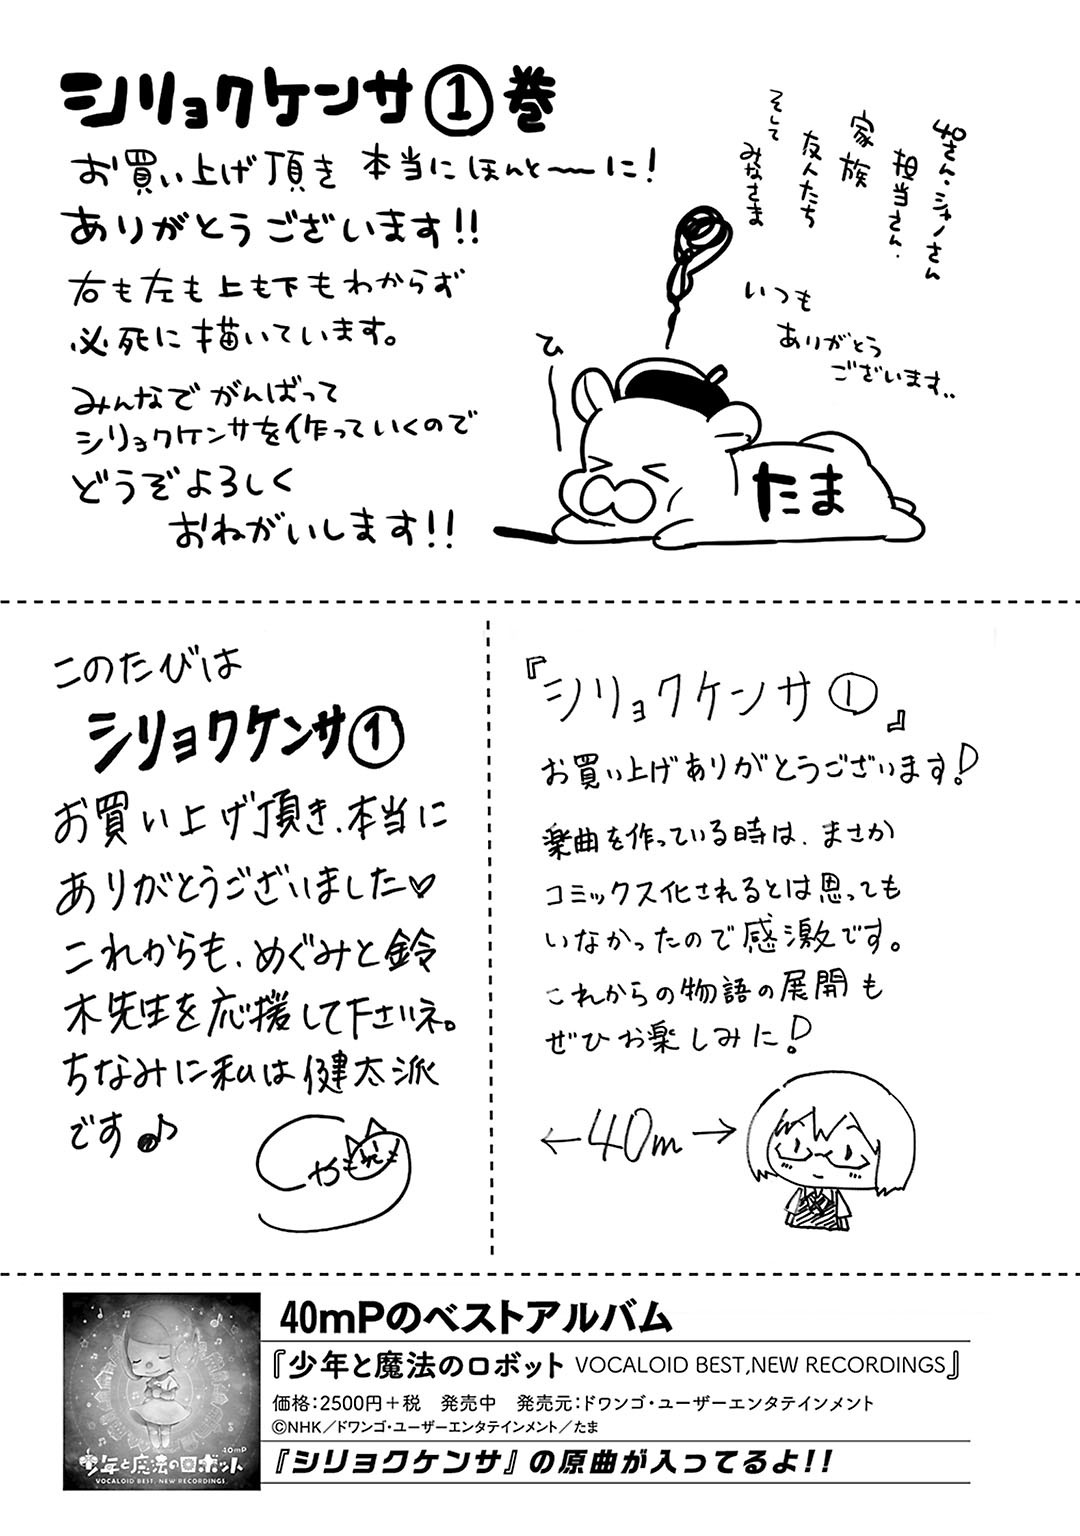 シリョクケンサ①巻
お買い上げ頂き 本当にほんと〜〜に!
ありがとうございます!!
右も左も上も下もわからず
必死に描いています。
みんなでがんばって
シリョクケンサを作っていくので
どうぞよろしく
おねがいします!!
40さん、シャノさん
担当さん、
家族
友人たち
そして
みなさま
いつも
ありがとう
ございます..
ひー
たま
このたびは
シリョクケンサ①
お買い上げ頂き、本当に
ありがとうございました♡
これからも、めぐみと鈴
木先生を応援して下さいネ。
ちなみに私は健太派
です♪
しゃの
『シリョクケンサ①』
お買い上げありがとうございます!
楽曲を作っている時は、まさか
コミックス化されるとは思っても
いなかったので感激です。
これからの物語の展開も
ぜひお楽しみに!
←40m→
40mP
少年と魔法のロボット
VOCALOID BEST, NEW RECORDINGS
40mPのベストアルバム
『少年と魔法のロボット VOCALOID BEST,NEW RECORDINGS』
価格:2500円+税 発売中 発売元:ドワンゴ・ユーザーエンタテインメント
©NHK/ドワンゴ・ユーザーエンタテインメント/たま
『シリョクケンサ』の原曲が入ってるよ!!